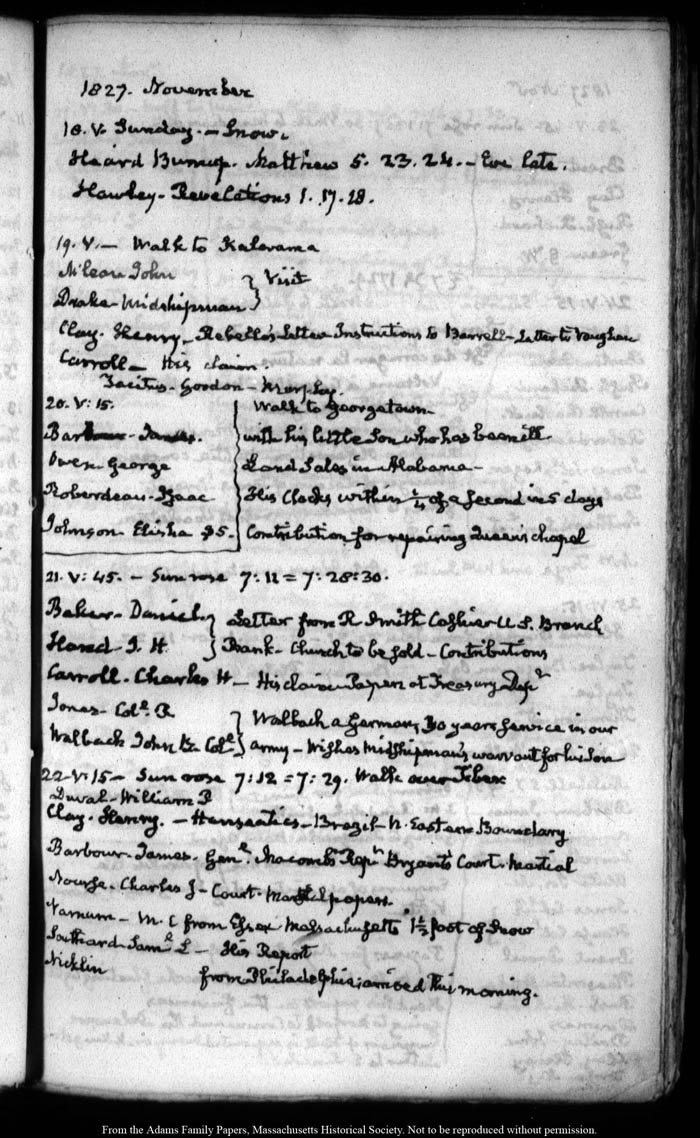 1827. November
18. V. Sunday. - Snow.
Heard Burnap. Matthew 5. 23. 24. - Eve late.
Hawley - Revelations 1. 17. 18.
19. V. - Walk to Kalorama
McLean John } Visit
Drake - Midshipman }
Clay. Henry - Rebello's Letter Instructions to Barrell - Letter to Vaughan
Carroll - His claim.
Tacitus - Gordon - Murphy.
20. V: 15. Walk to Georgetown
Barbour - James. with his little Son who has been ill
Owen - George Land Sales in Alabama -
Roberdeau - Isaac His Clocks within ¼ of a Second in 5 days
Johnson Elisha $5. Contribution for repairing Queen's chapel
21. V: 45. - Sun rose 7: 11 = 7: 28: 30.
Baker - Daniel } Letter from R Smith Cashier U. S. Branch
Hand - J. H } Bank - Church to be sold - Contributions
Carroll. Charles H - His claim Papers at Treasury Dept
Jones - Coll. R } Walbach a German, 30 years service in our
Walbach John B. Coll } army - Wishes Midshipman's warrant for his Son
22 - V: 15 - Sun rose 7: 12 = 7: 29. Walk over Tiber
Duval - William P
Clay. Henry. - Hanseatics - Brazil - N. Eastern Boundary
Barbour - James - Genl. Macomb's Rept Bryant's Court-Martial
Nourse. Charles J - Court-Martial papers.
Varnum - M. C from Essex Massachusetts 1½ foot of Snow
Southard Saml L - His Report
Nicklin from Philadelphia; arrived this morning.
From the Adams Family Papers, Massachusetts Historical Society. Not to be reproduced without permission.